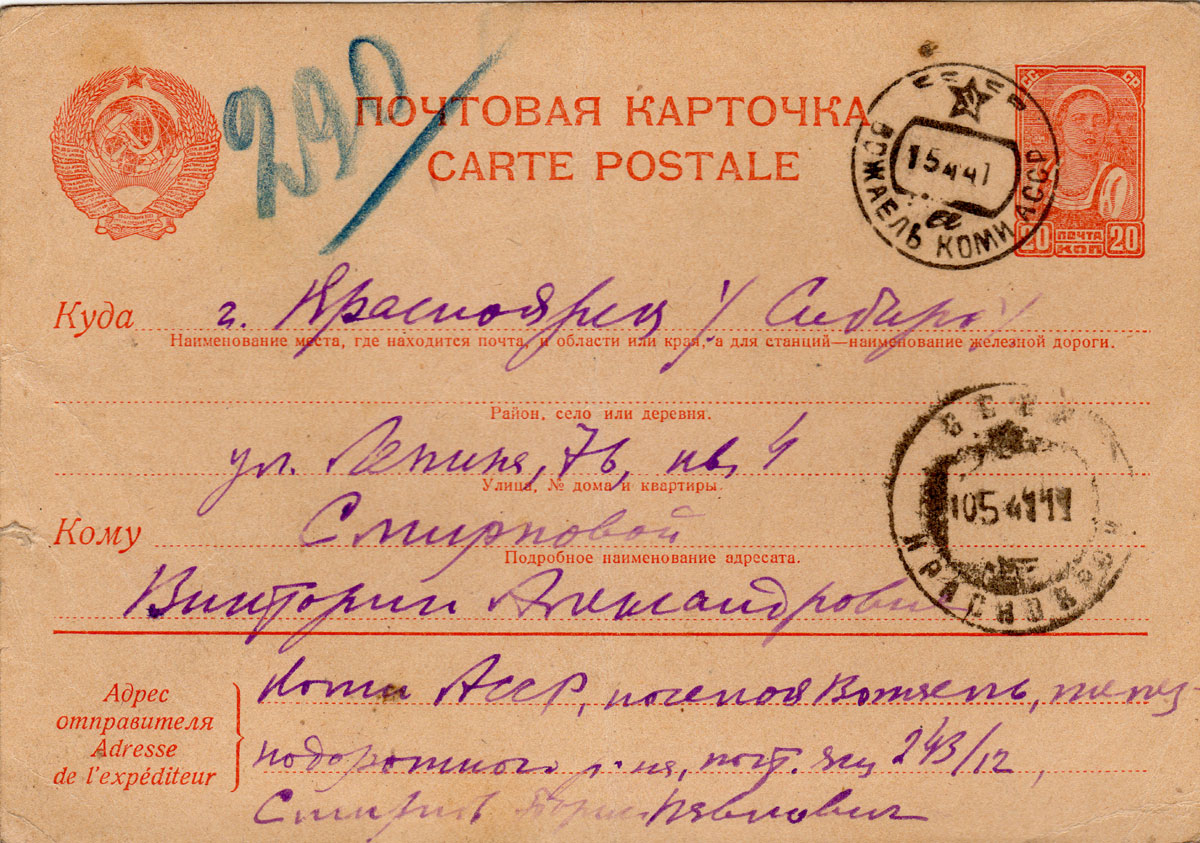 290
ПОЧТОВАЯ КАРТОЧКА
CARTE POSTALE
СС СР
ВОЖАЕЛЬ КОМИ АССР
15 4 41
а
20 ПОЧТА 20
КОП
Куда г. Красноярск /Сибирь/
Наименование места, где находится почта, и области или края, а для станций—наименование железной дороги.
Район, село или деревня.
ул. Ленина, 76, кв. 4
Улица, № дома и квартиры.
Кому Смирновой
Подробное наименование адресата.
Виктории Александровне
КРАСНОЯРСК
Адрес
отправителя
Adresse
de l'expéditeur
Коми АССР, поселок Вожаель, желез
нодорожного р-на, почт. ящ 243/12,
Смирнов Павлович